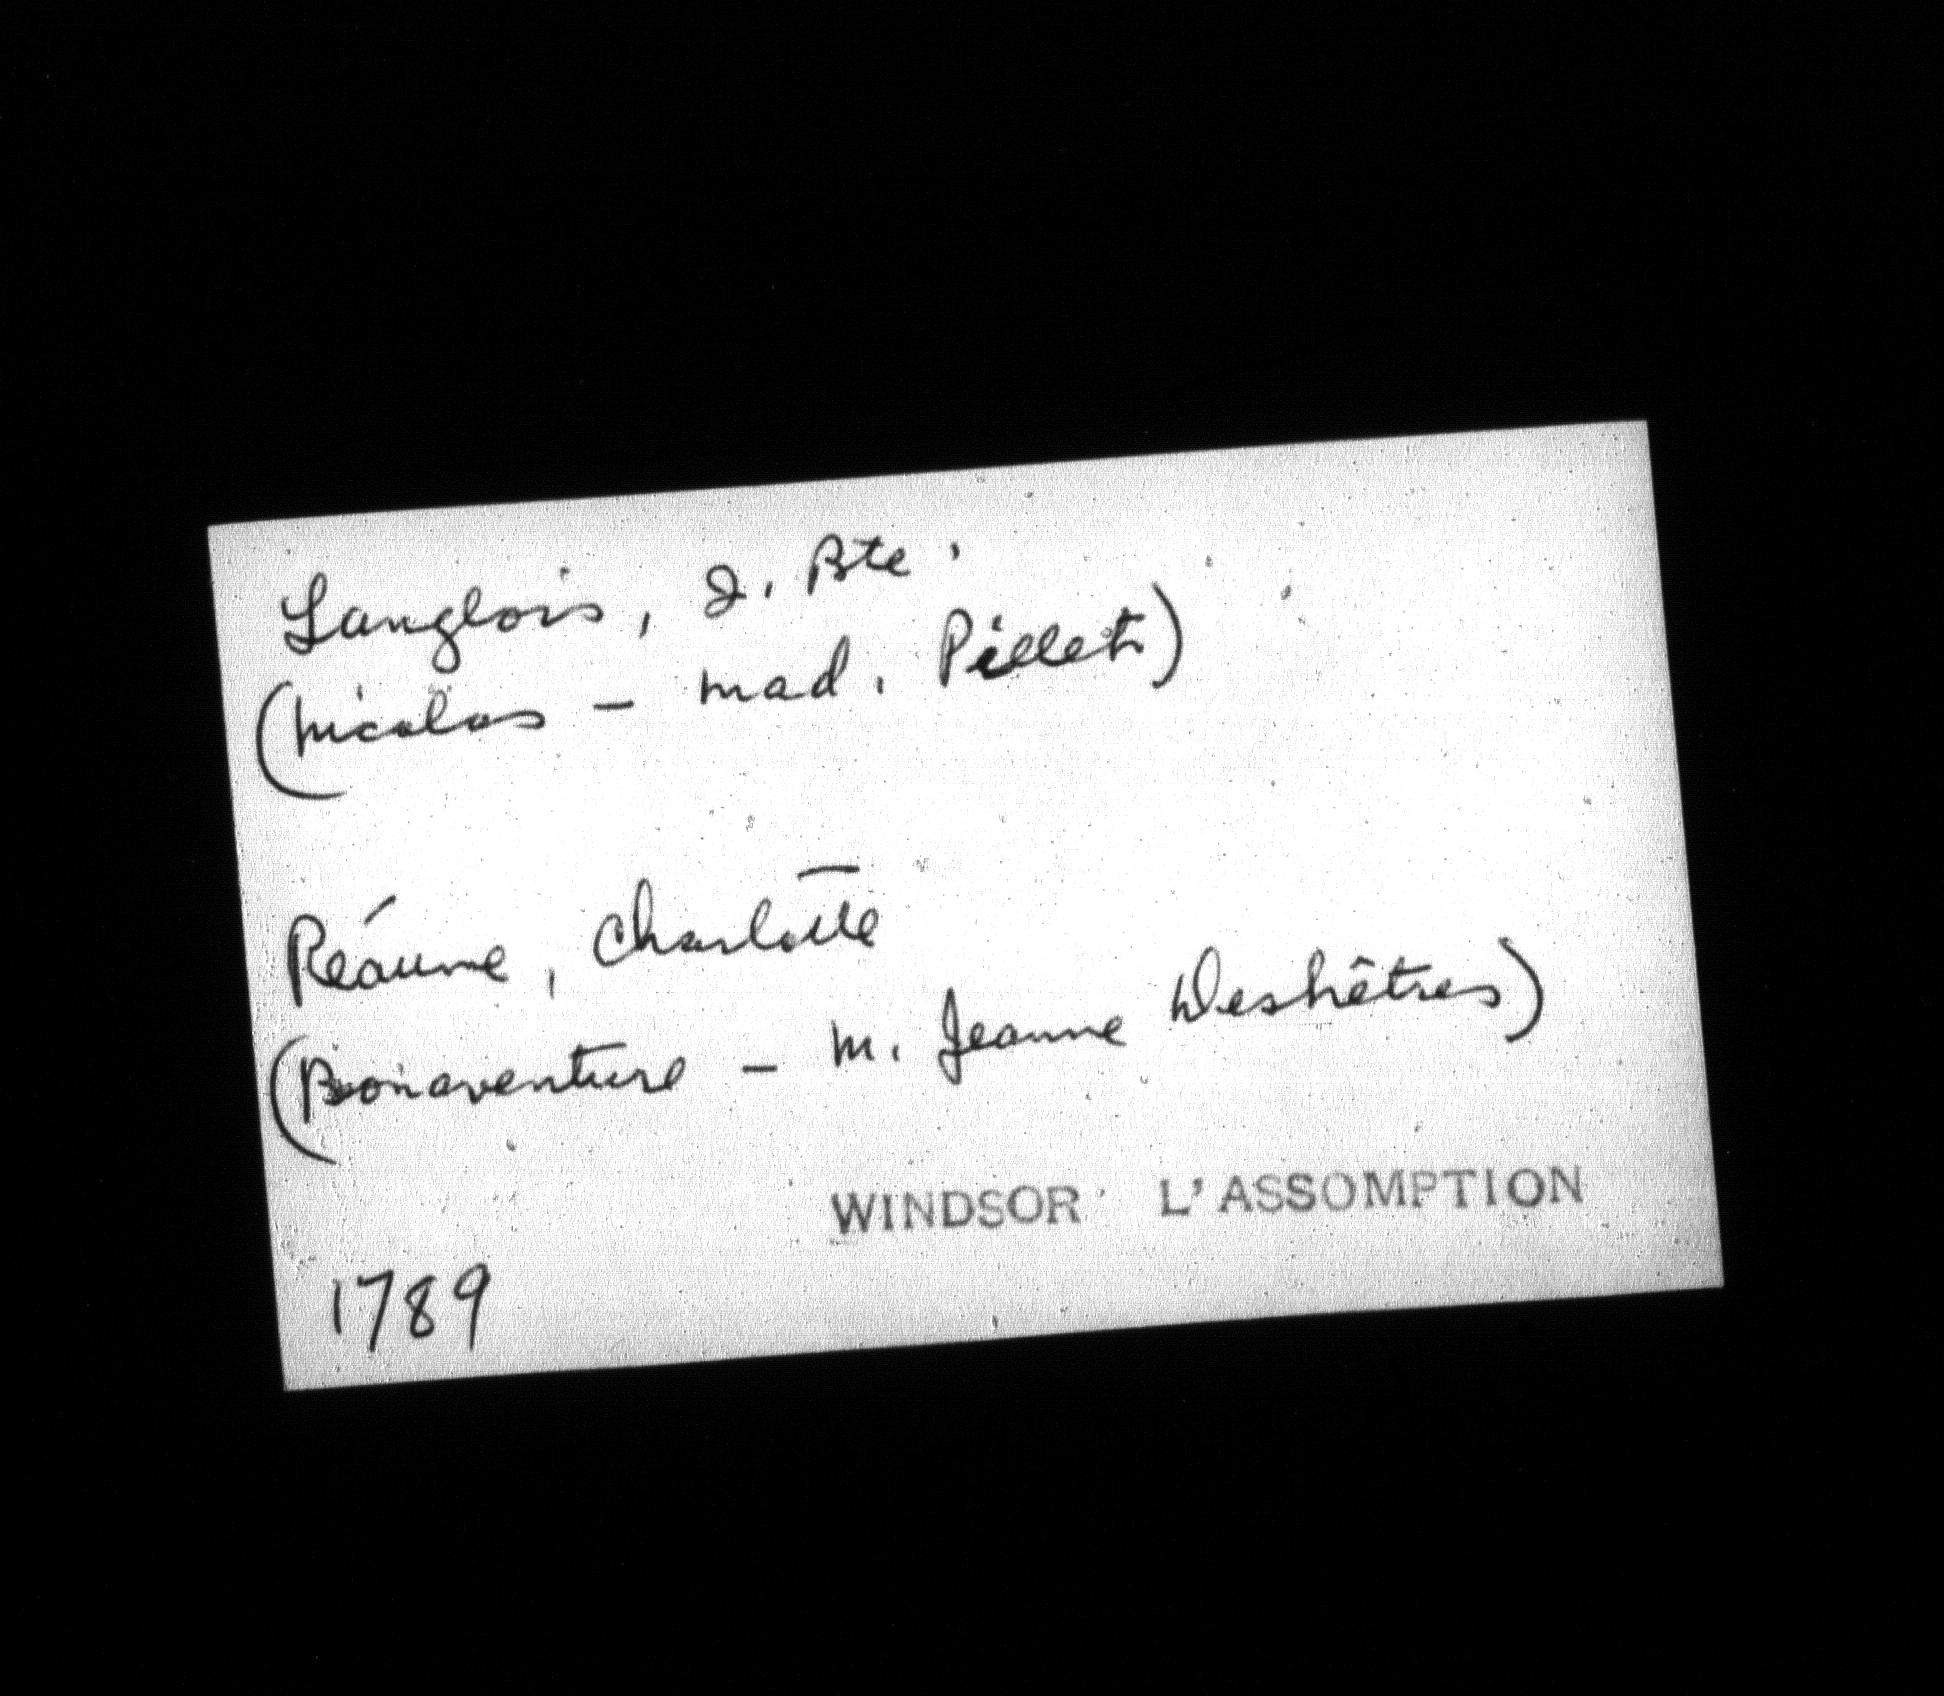 Langlois, J. Bte.
(Nicolas - Mad. Pillet)
Réaume, Charlotte
(Bonaventure - M. Jeanne Deshêtres)
WINDSOR L'ASSOMPTION
1789